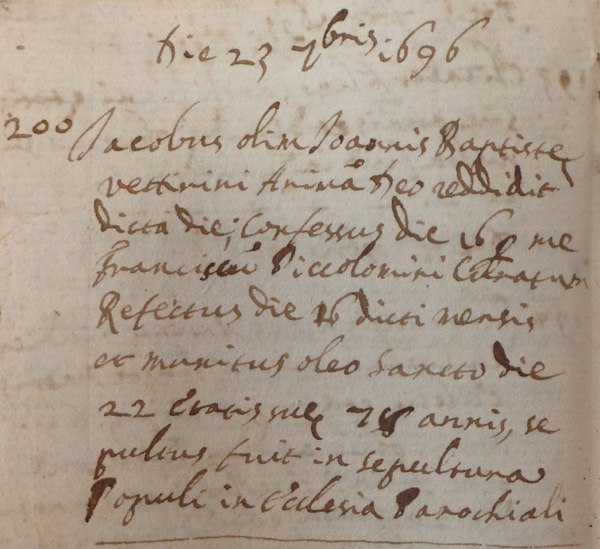 Die 23 7bris 1696
200 Jacobus olim Joannis Baptistę
vettirini Animã Deo reddidit
dicta die; Confessus die 16 p me
Franciscũ Piccolomini Curatum
Refectus die 16 dicti mensis
et munitus oleo Sancto die
22 Etatis suę annis, se
pultus fuit in sepultura
Populi in Ecclesia Parochiali